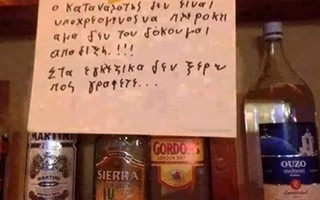 Ο ΚαταναΛοτής δεν είναι
υποχρεομενος να πλεροκι
αμα δεν του δόκουμαι
αποδιξη.!!!
Στα εγκεζικα δεν ξερω
πος γραφετε...
MARTINI
SIERRA
GORDON'S
OUZO